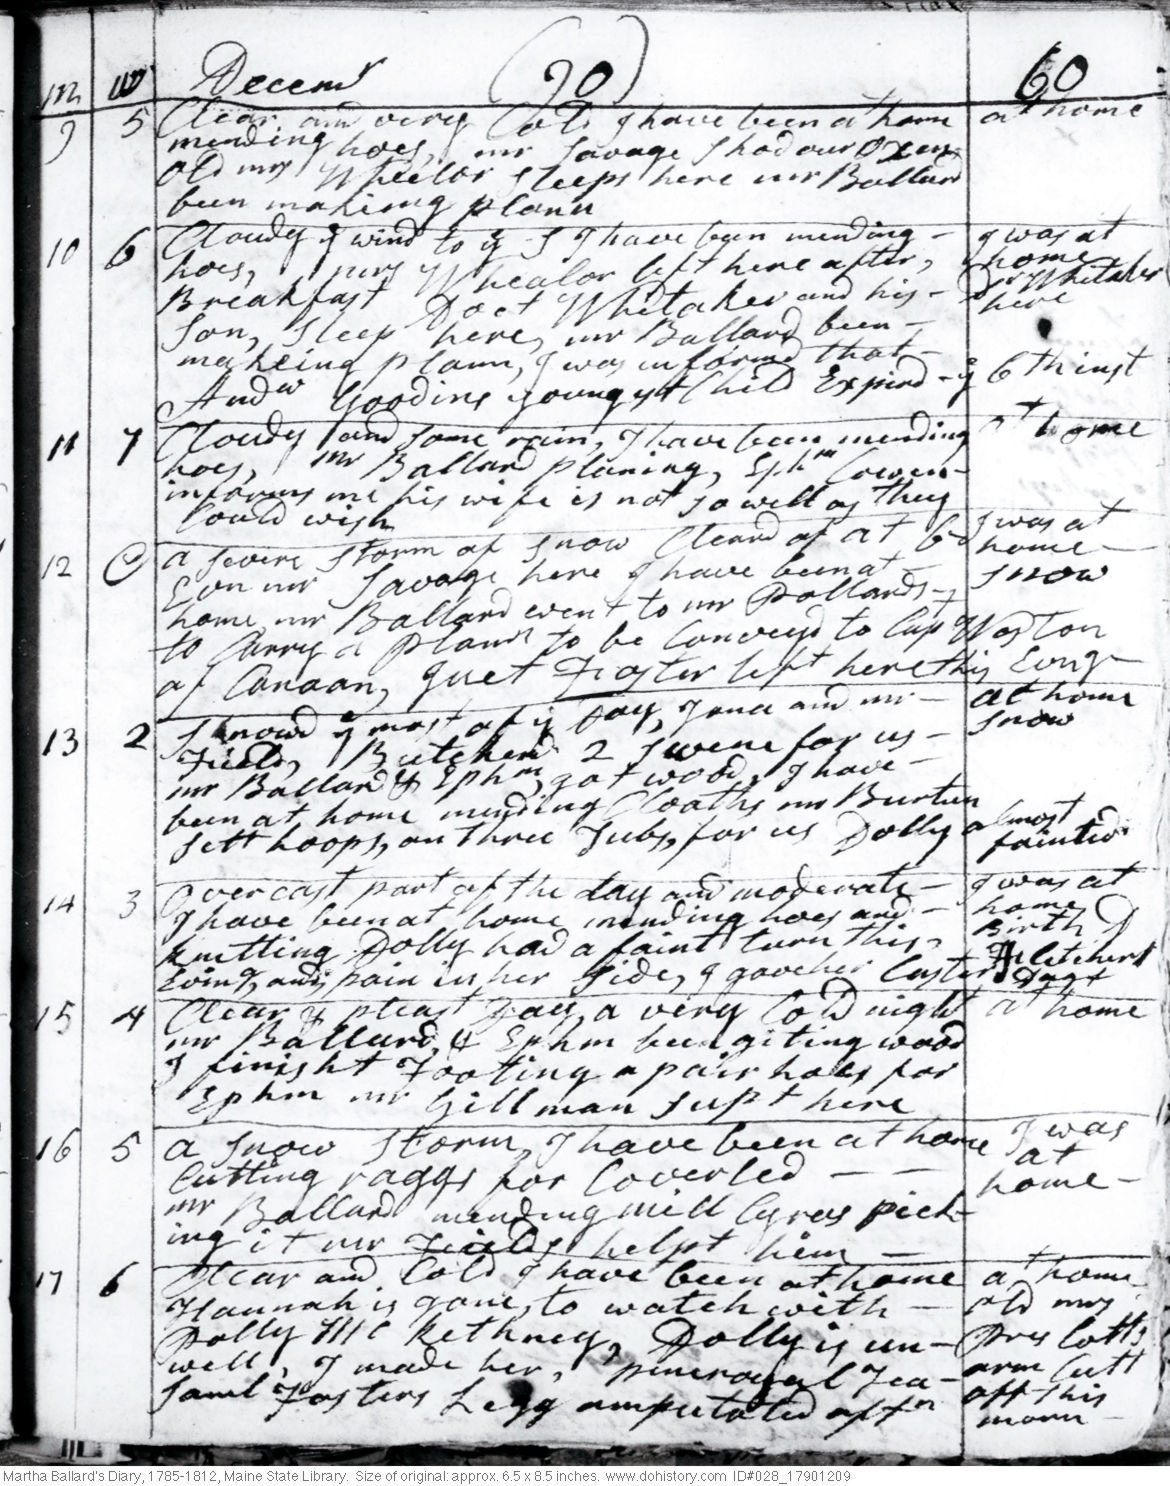 m w Decemr (90) 60
9 5 Clear and very Cold I have been at home at home
mending hoes, mr Savage Shod our Oxen
old mrs Wheelor Sleeps here mr Ballard
been makeing plann
10 6 Cloudy ye wind to ye S I have been mending – I was at
hoes, mrs Whealor left here after, home
Breakfast Doct Whitaker and his – Dr Whitaker
Son, Sleep here, mr Ballard been – here
makeing plann, I was informd that –
Andw Goodins youngst Child Expird – ye 6th inst
11 7 Cloudy and some rain, I have been mending at home
hoes, mr Ballard planing, Ephm Cowen –
informs me his wife is not so well as they
Could wish
12 a severe storm of snow Cleard of at I was at
Evn mr Savage here I have been at – home –
home, mr Ballard went to mr Pollards – snow
to Carry a plann to be Conveyd to Capt Waston
of Canaan, Jnet Foster left here this Evng –
13 2 Snowd ye most of ye Day, Jona and mr – at home
Fields, Butcherd 2 Swine for us – snow
mr Ballard & Ephm, got wood, I have –
been at home mending Cloaths mr Burtun
Sett hoops, on three Tubs, for us Dolly almost
fainted
14 3 Overcast part of the day and moderate – I was at
I have been at home mending hoes and – home
knitting Dolly had a faint turn this – Birth D
Evng, and pain in her Side, I gave her Caster Fletchers
Dagt
15 4 Clear & pleast Day, a very Cold night at home
mr Ballard, & Ephm been giting wood
I finisht Footing a pair hoes for
Ephm mr Gillman Supt here
16 5 a snow storm, I have been at home I was
Cutting raggs for Coverled – – at
mr Ballard mending mill Cyrus pick- home –
ing it mr Fields helpt him –
17 6 Clear and Cold I have been at home at home
Hannah is gone, to watch with – old mrs
Polly Mc kethney, Dolly is un– Prescotts
well, I made her, penerogal Tea – arm Cutt
Saml Fosters Legg amputated aftn off this
morn –
Martha Ballard's Diary, 1785-1812, Maine State Library. Size of original: approx. 6.5 x 8.5 inches. www.dohistory.com ID#028_17901209